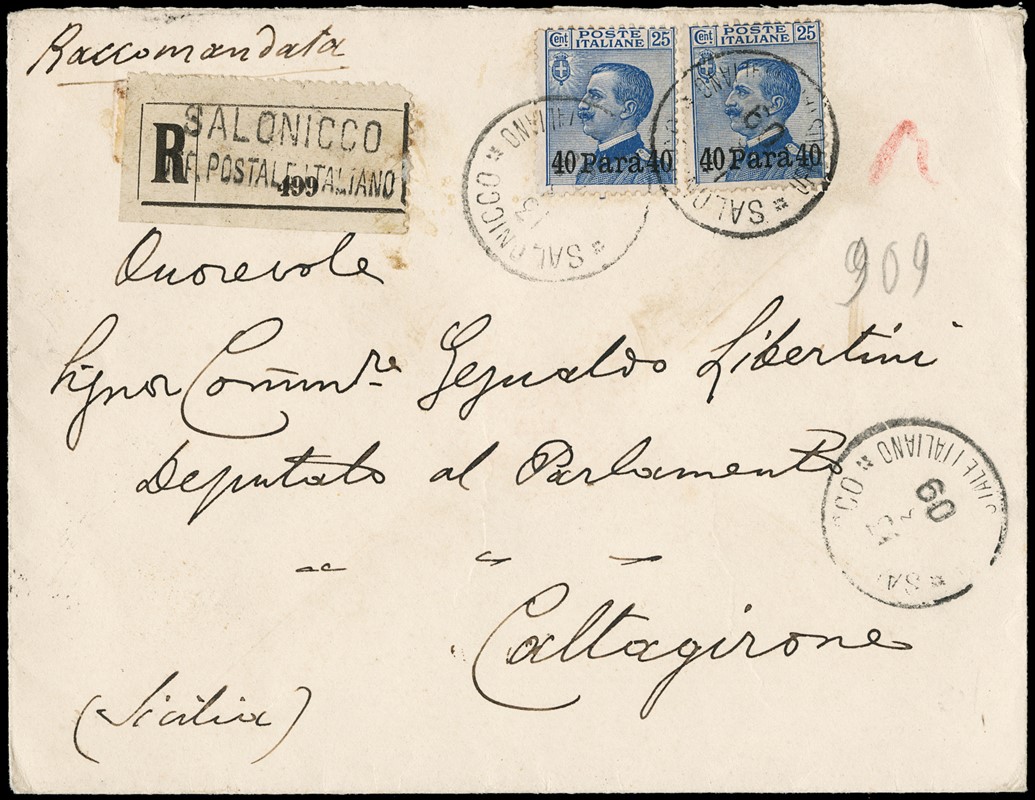 Raccomandata
R
SALONICCO
F. POSTALE ITALIANO
499
Cent POSTE ITALIANE 25
40 Para 40
Cent POSTE ITALIANE 25
40 Para 40
* SALONICCO *
13
* SALO
09
909
Onorevole
Signor Comm.re Gesualdo Libertini
Deputato al Parlamento
Caltagirone
(Sicilia)
STALE ITALIANO *
09